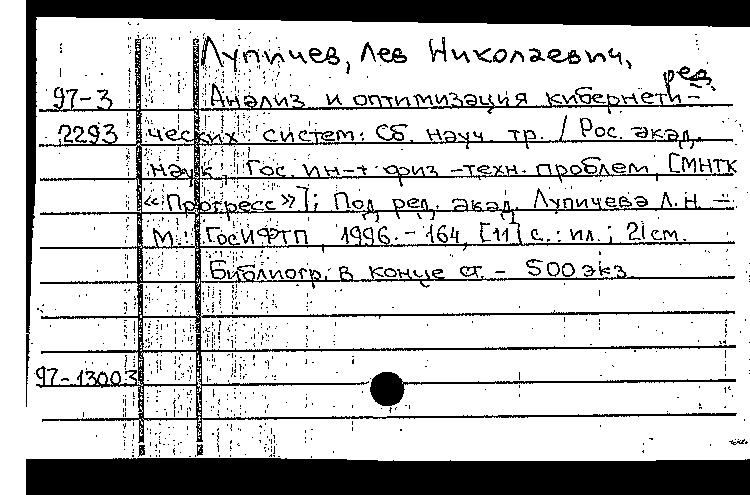 Лупичев, Лев Николаевич,
ред.
97-3 Анализ и оптимизация кибернети-
2293 ческих систем: Сб. науч. тр. / Рос. акад.
наук, Гос. ин-т физ-техн. проблем, [МНТК
«Прогресс»]; Под ред. акад. Лупичева Л.Н -
М.: ГосИФТП, 1996. - 164, [11] с.: ил.; 21 см.
Библиогр. в конце ст. - 500 экз.
97-13003